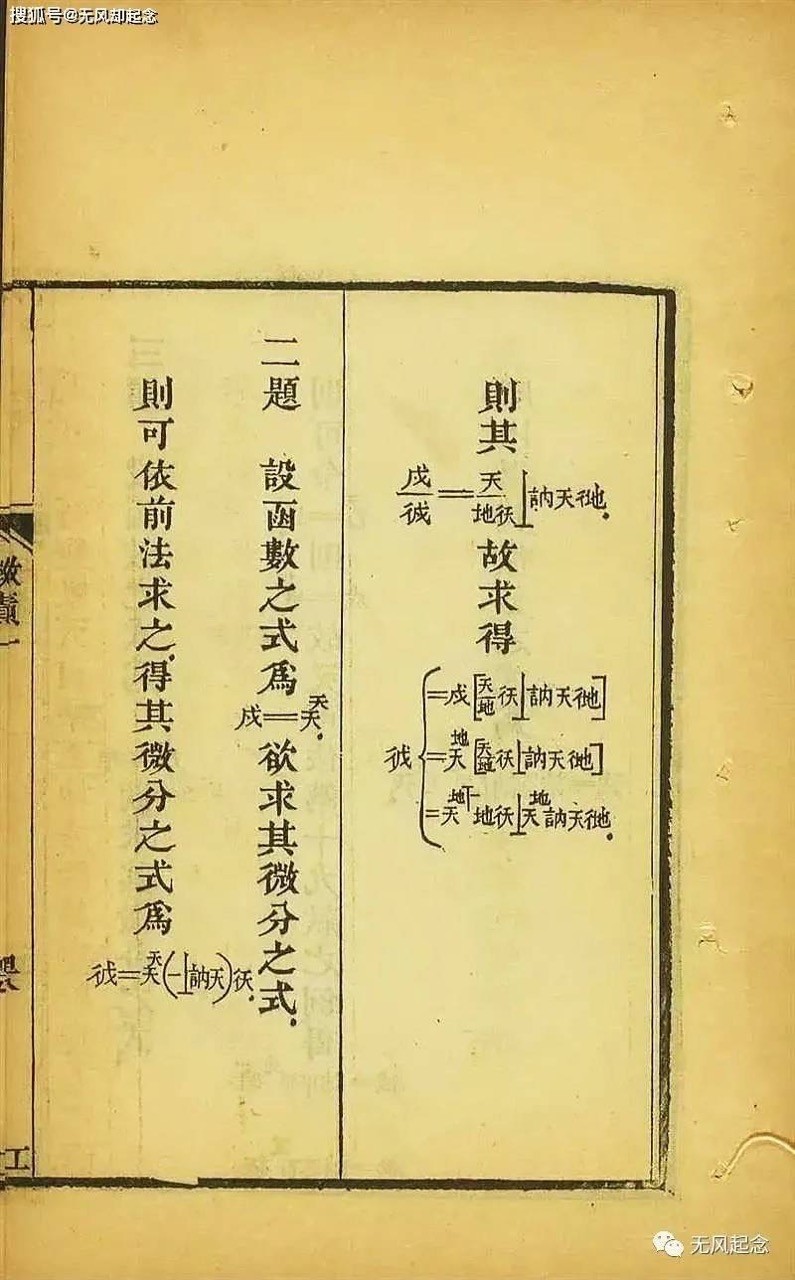 搜狐号@无风却起念
則其
戊/𢓍=天/地⿰彳天⊥訥天⿰彳地.
故求得
⿰彳戊{=戊[天/地⿰彳天⊥訥天⿰彳地]
=天^地[天/地⿰彳天⊥訥天⿰彳地]
=天^(地丅一)地⿰彳天⊥天^地訥天⿰彳地.
二題 設函數之式爲戊=天^天.欲求其微分之式.
則可依前法求之.得其微分之式爲⿰彳戊=天^天(一⊥訥天)⿰彳天.
无风起念